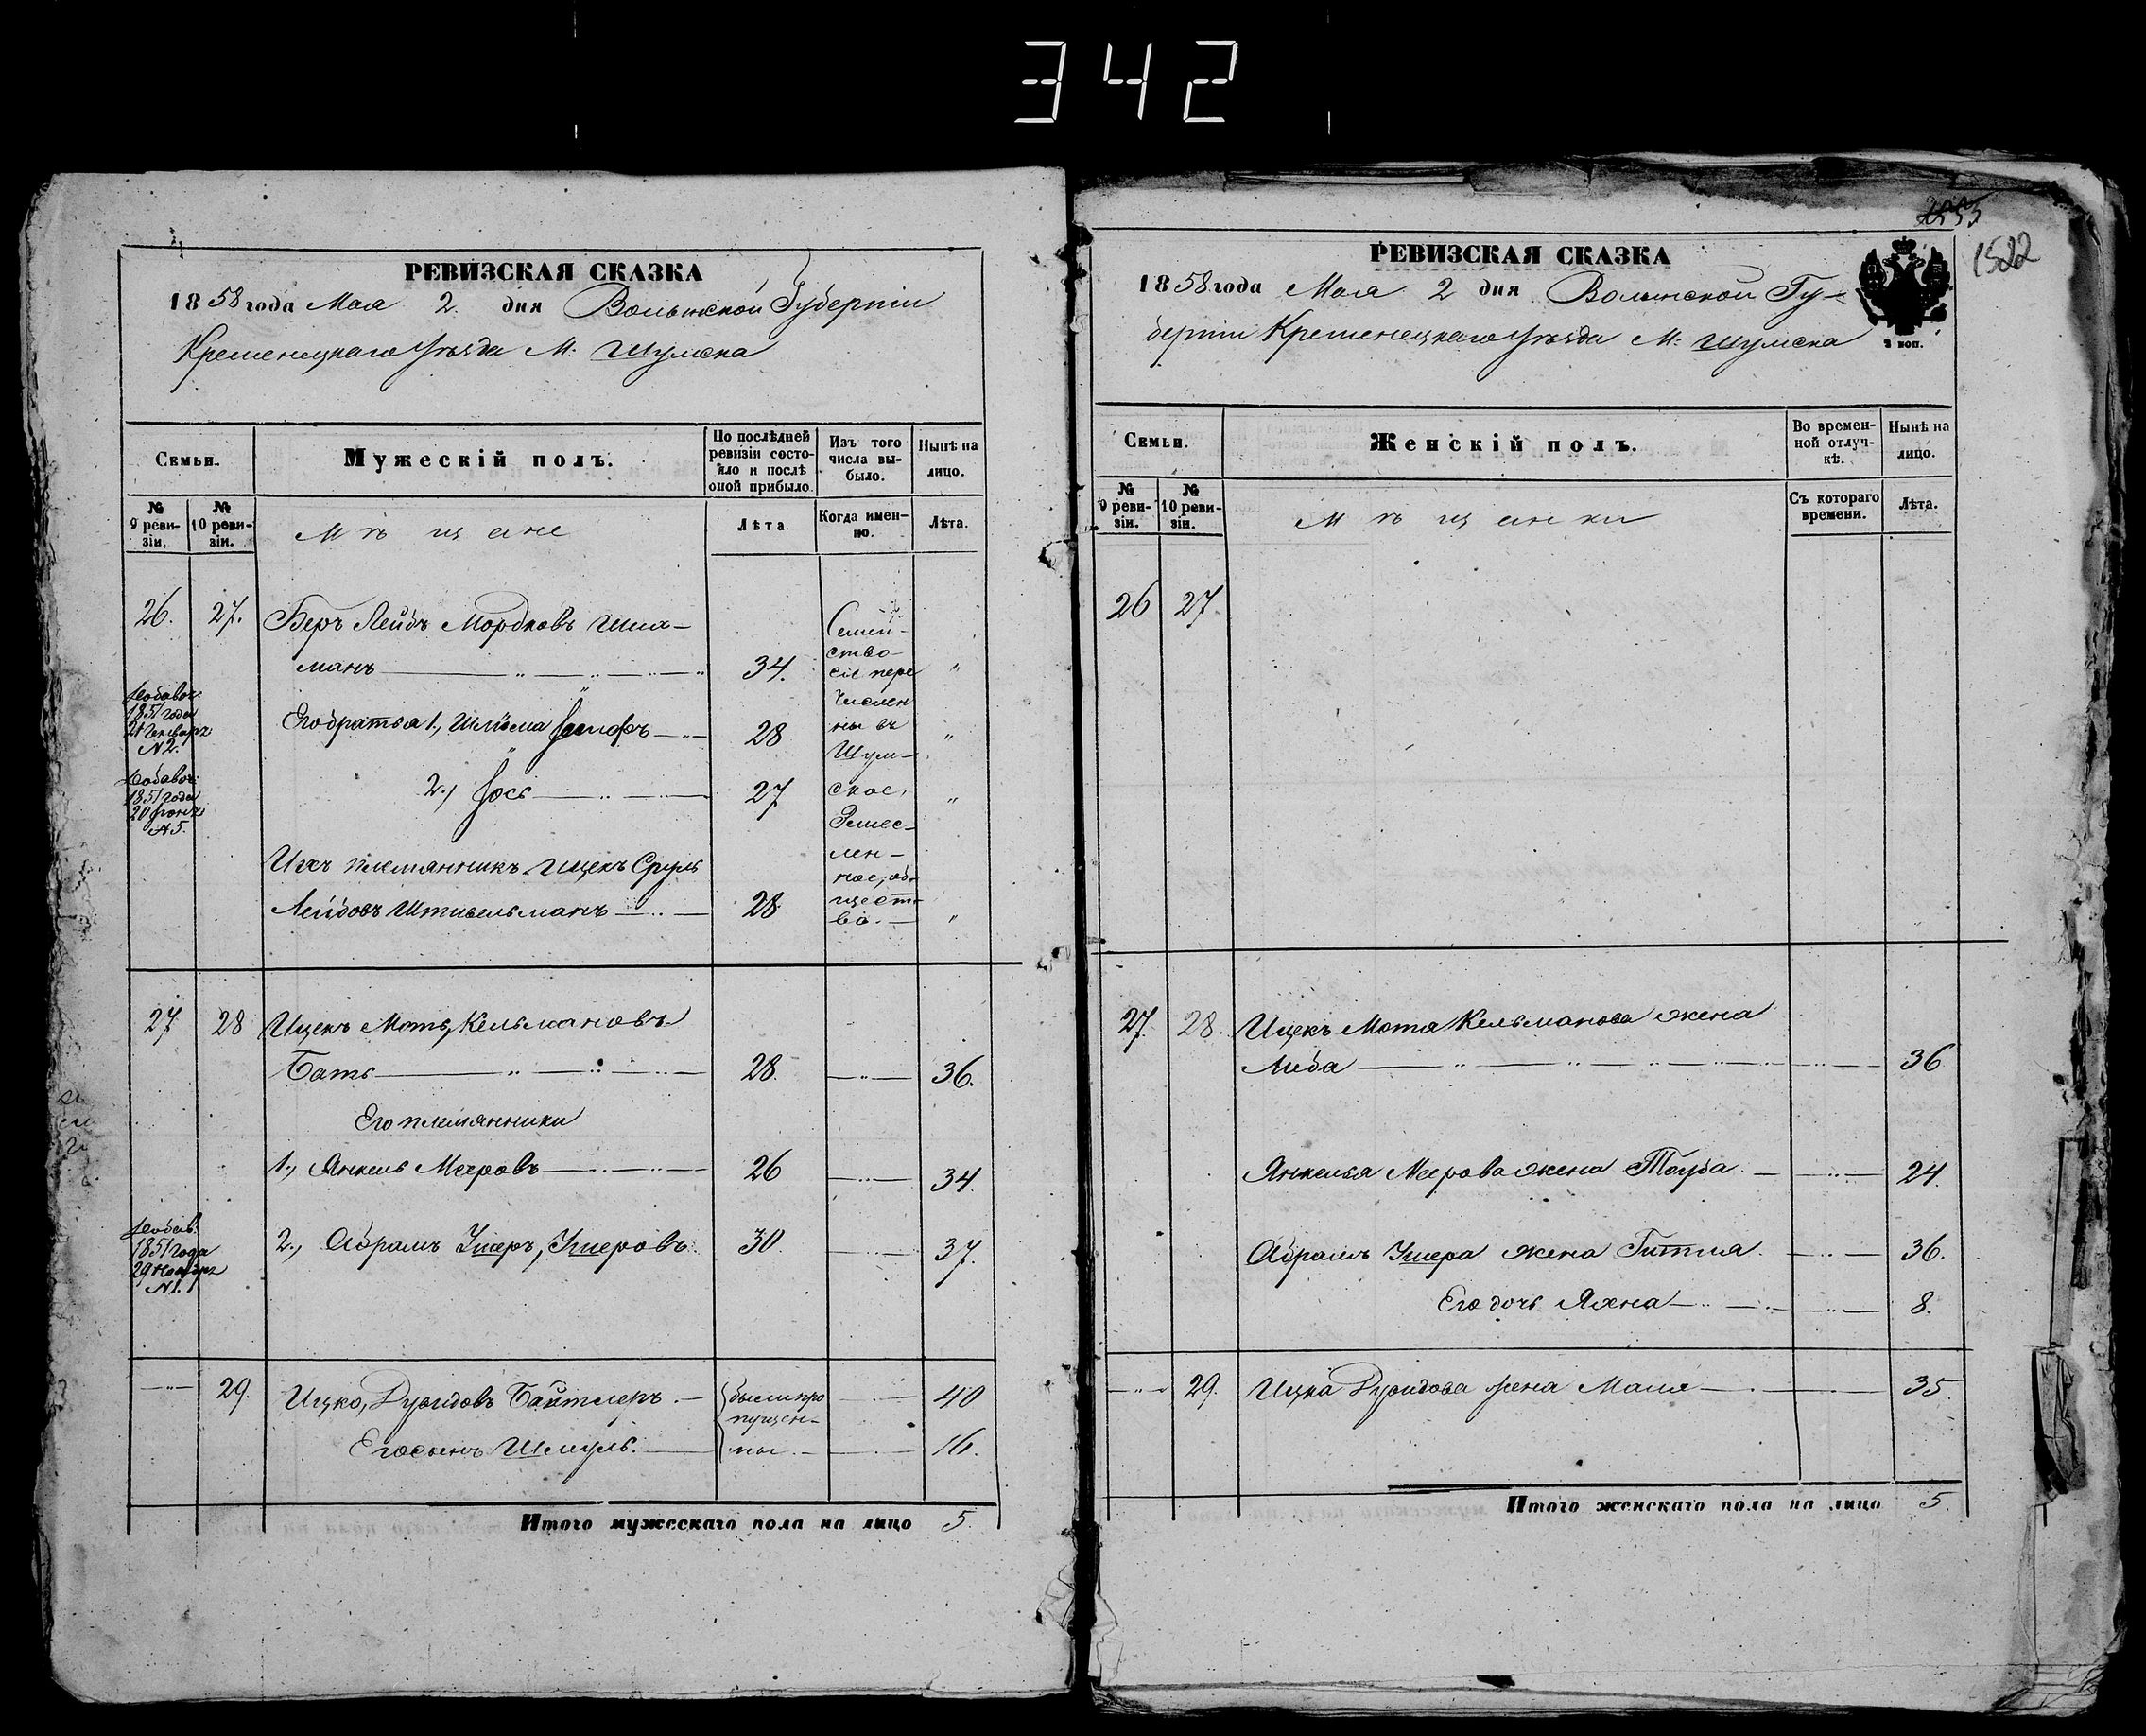 342
РЕВИЗСКАЯ СКАЗКА
1858 года Мая 2 дня Волынской Губерніи
Кременецкаго Уѣзда М: Шумска
Семьи.
Мужескій полъ.
По послѣдней ревизіи состояло и послѣ оной прибыло.
Изъ того числа выбыло.
Нынѣ на лицо.
№ 9 ревизіи.
№ 10 ревизіи.
Мѣщане
Лѣта.
Когда именно.
Лѣта.
26. 27. Беръ Лейбъ Мордковъ
манъ 34. "
Добавоч: 1851 года 21 Генваря N 2.
Его братья 1, Шлёма Іосифъ 28 "
Добавоч: 1851 года N 5.
2, Іось 27 "
Ихъ племянникъ Ицекъ Сруль
Лейбовъ Штивельманъ 28 "
Семейство сіе перечислены въ Шумское Ремесленное общество.
27 28 Ицекъ Мать, Кельмановъ
Бать 28. 36.
Его племянники
1, Янкель Мееровъ 26 34.
Добав: 1851 года 29 Ноября N 1.
2, Абрамъ Ушеръ, Ушеровъ 30. 37.
29. Ицко, Дувидовъ Байтлеръ были про 40
пущен-
Его сынъ Шмуль. ны 16.
Итого мужескаго пола на лицо 5.
1522
РЕВИЗСКАЯ СКАЗКА
1858 года Мая 2 дня Волынской Гу-
берніи Кременецкаго Уѣзда М: Шумска
3 коп.
Семьи.
Женскій полъ.
Во временной отлучкѣ.
Нынѣ на лицо.
№ 9 ревизіи.
№ 10 ревизіи.
Мѣщанки
Съ котораго времени.
Лѣта.
26 27.
27. 28. Ицекъ Мотя Кельманова жена
Либа 36
Янкеля Меерова жена Тоуба 24.
Абрамъ Ушера жена Гитля 36.
Его дочь Яхна 8.
29. Ицка Дувидова жена Маля 35.
Итого женскаго пола на лицо 5.